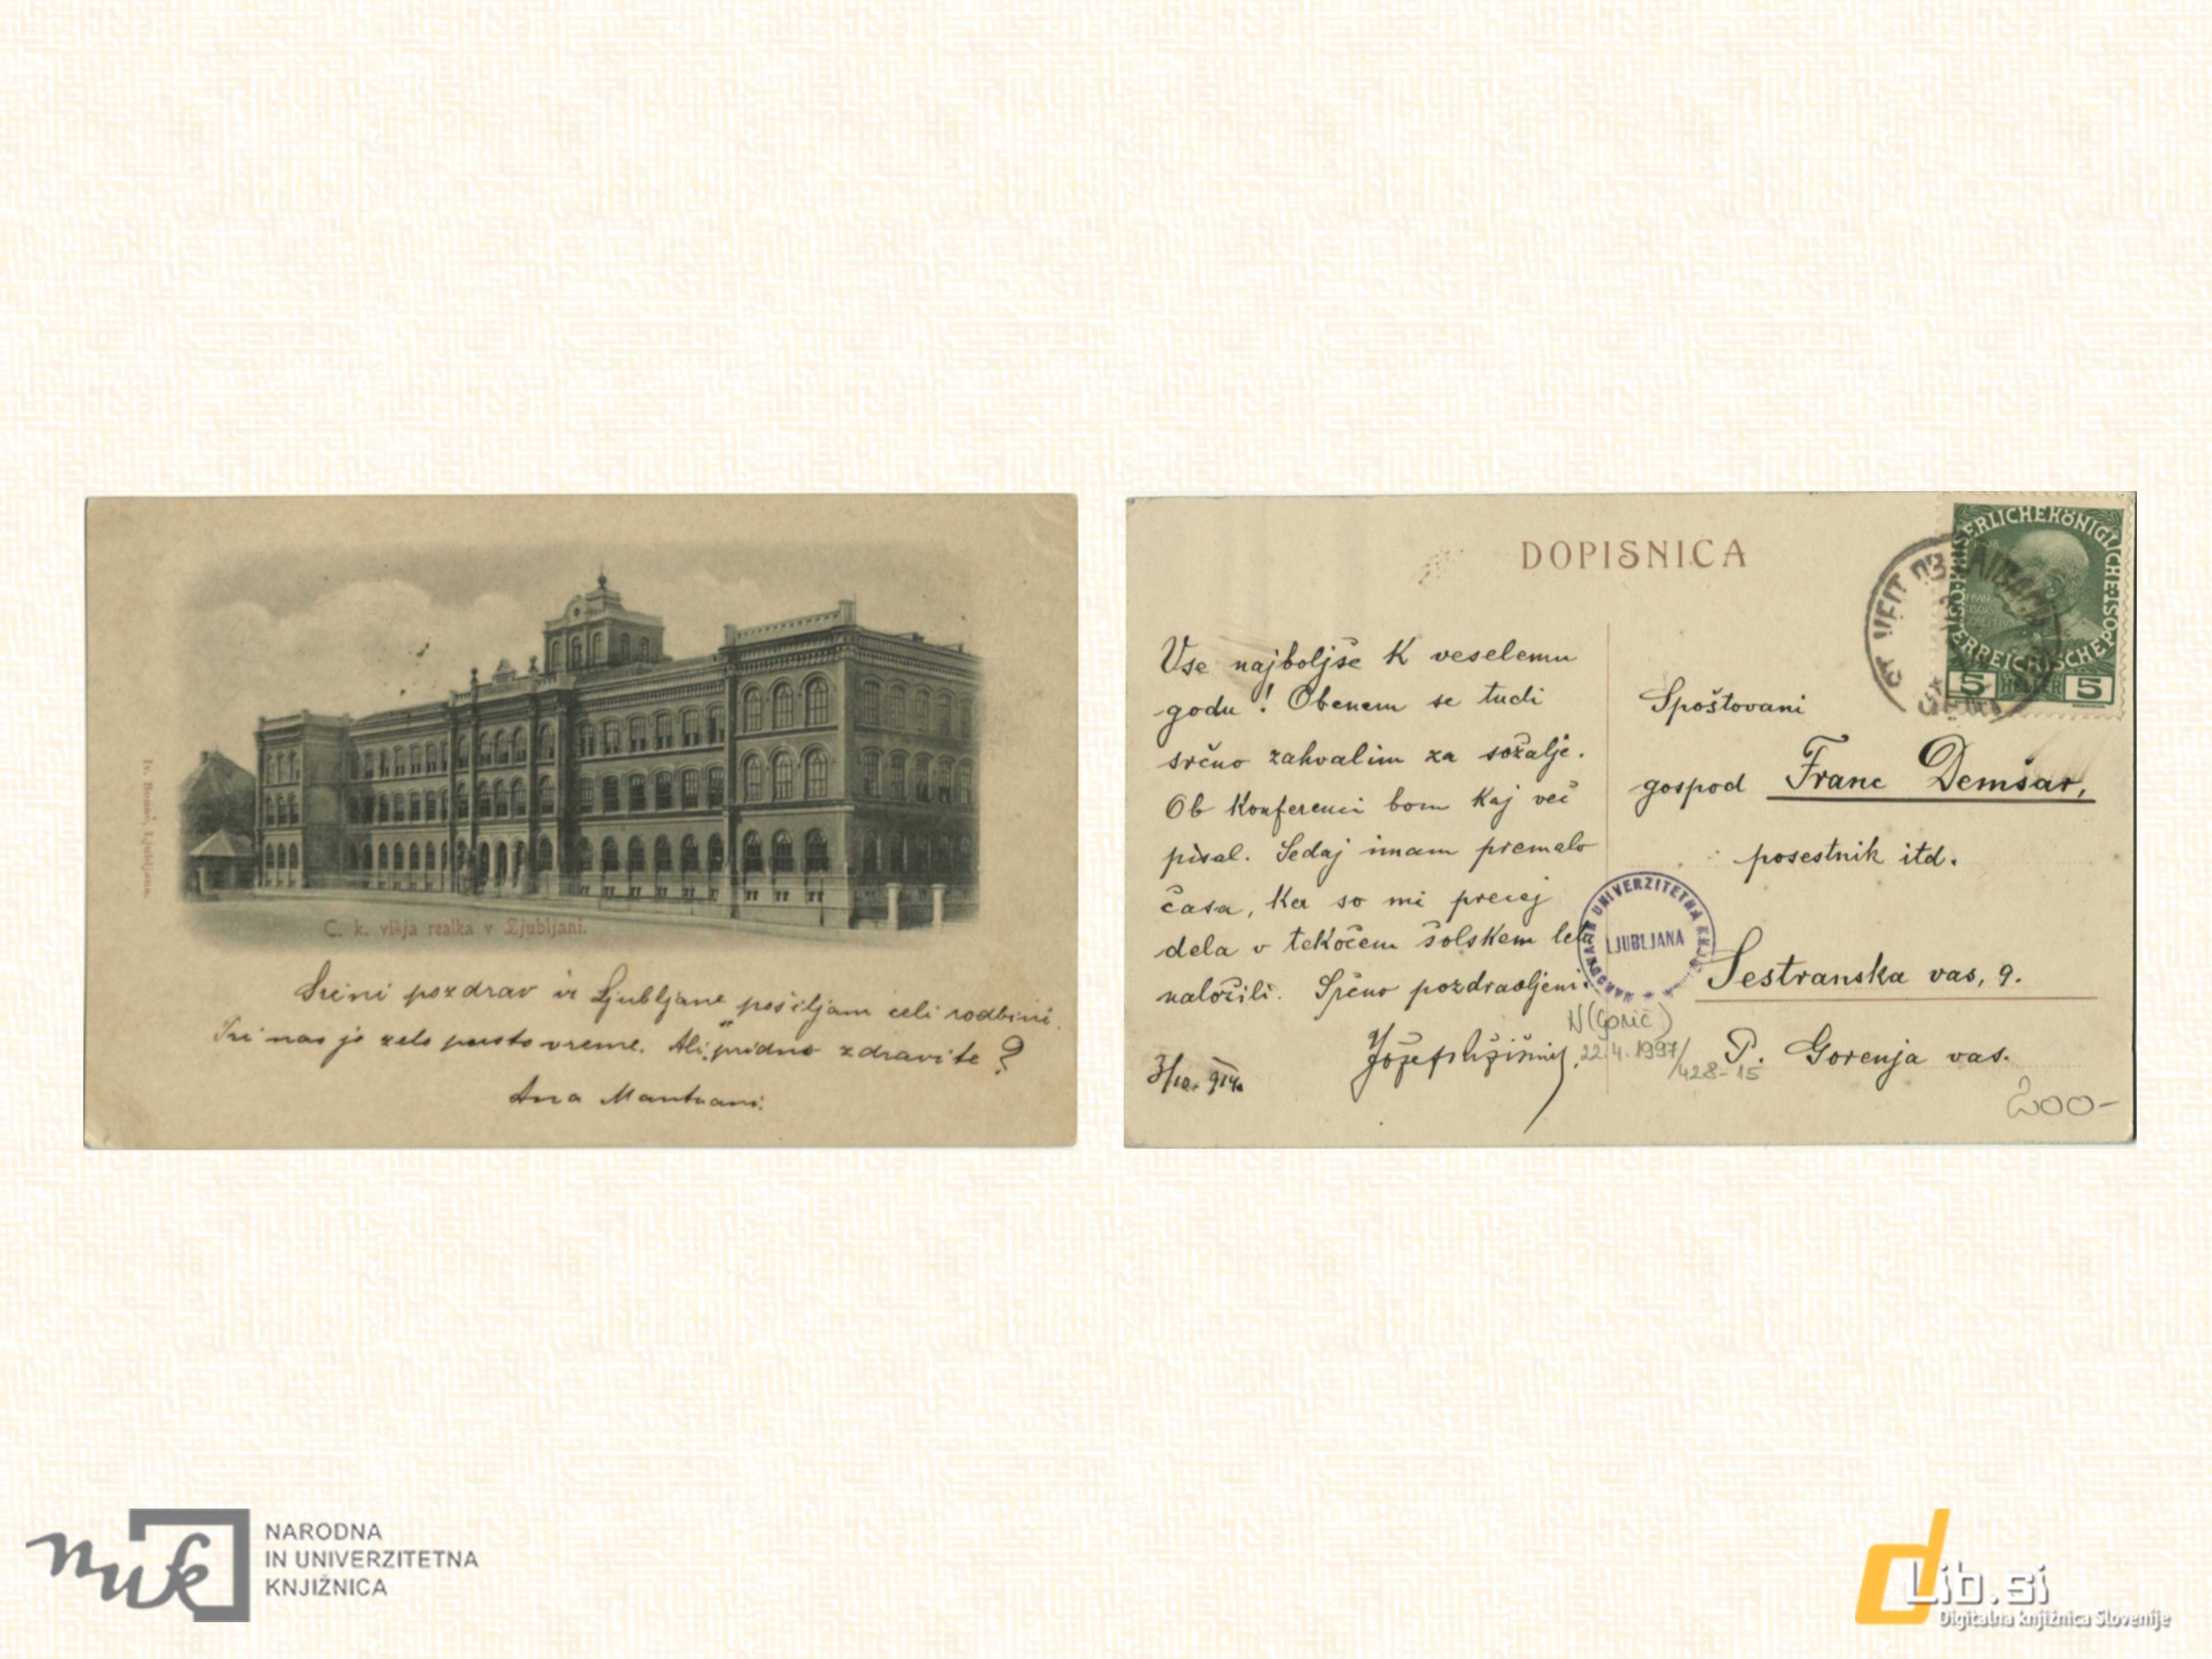 Iv. Bonač, Ljubljana.
C. k. višja realka v Ljubljani.
Srčni pozdrav iz Ljubljane pošiljam celi rodbini.
Pri nas je zelo pusto vreme. Ali „pridno zdravite?
Ana Mantuani.
DOPISNICA
Vse najboljše k veselemu
godu! Obenem se tudi
srčno zahvalim za sožalje.
Ob konferenci bom kaj več
pisal. Sedaj imam premalo
časa, ker so mi precej
dela v tekočem šolskem letu
naložili. Srčno pozdravljeni.
Jožef
3/10. 914.
KAISERLICHE KÖNIGLICHE
ÖSTERREICHISCHE POST
5 HELLER 5
ST VEIT OB
Spoštovani
gospod Franc Demšar,
posestnik itd.
NARODNA IN UNIVERZITETNA KNJIŽ
LJUBLJANA
Sestranska vas, 9.
P. Gorenja vas.
N (Gorič)
22.4.1997/
428-15
200-
nuk
NARODNA
IN UNIVERZITETNA
KNJIŽNICA
dLib.si
Digitalna knjižnica Slovenije